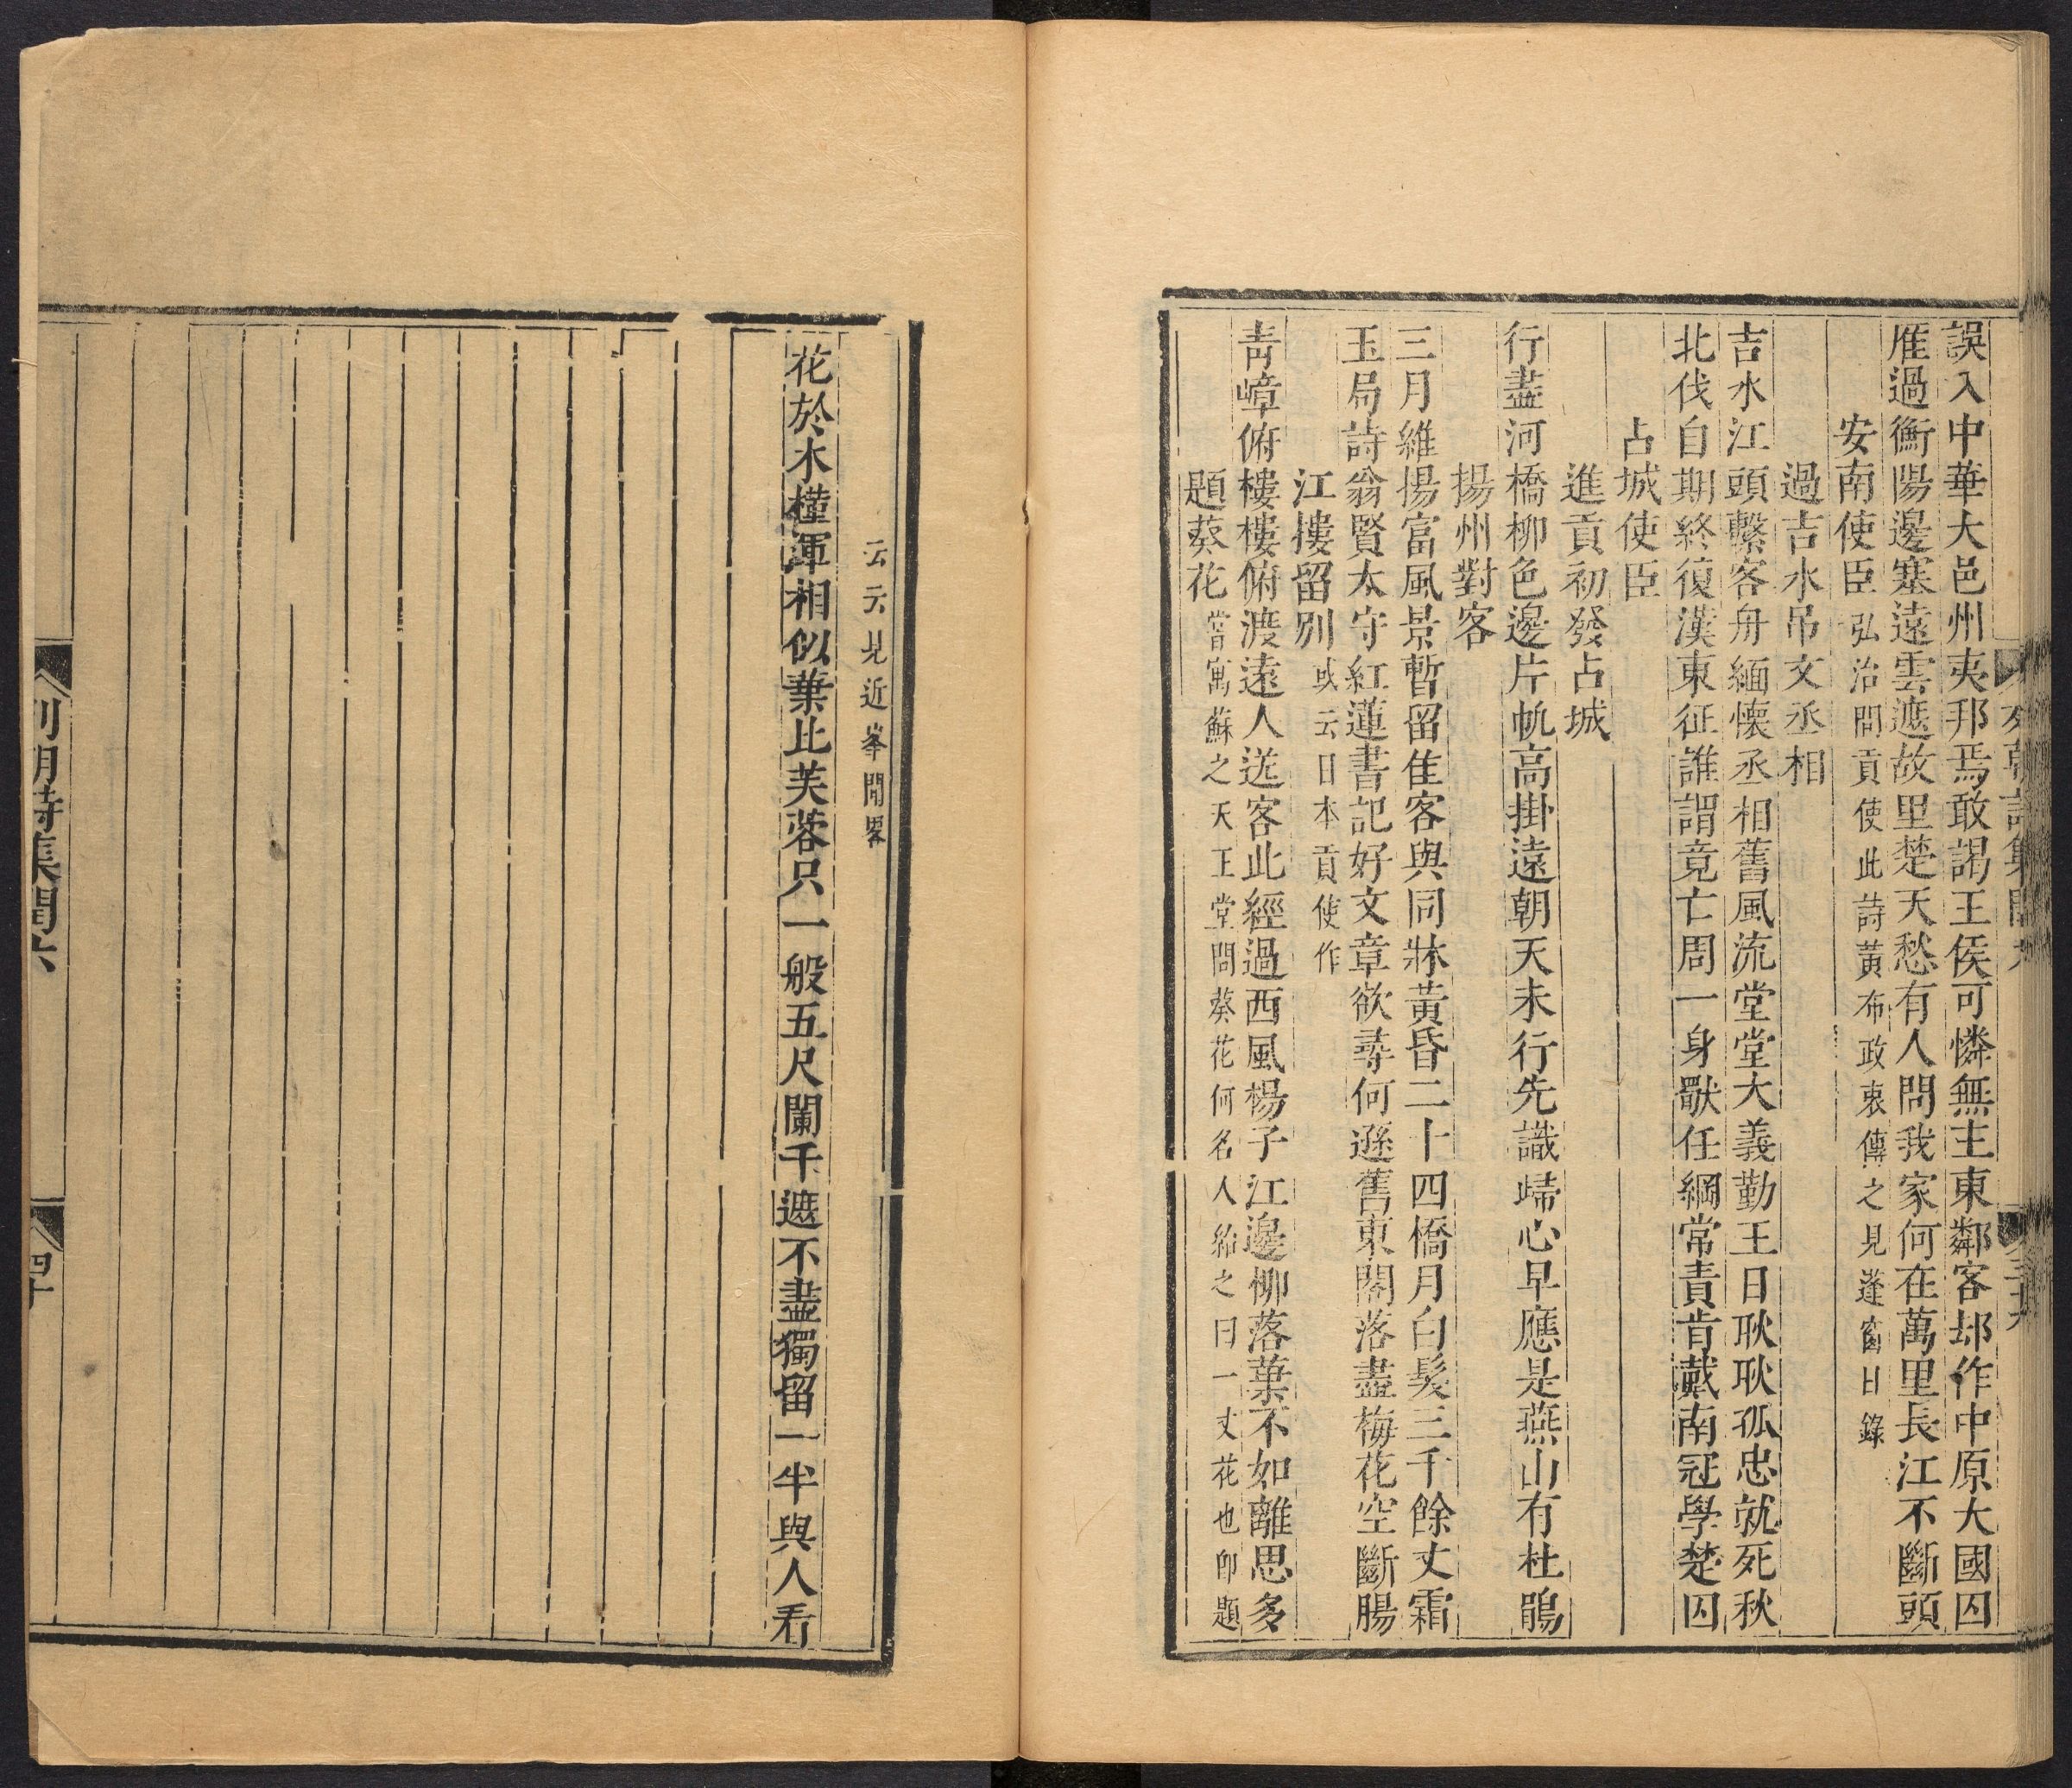 誤入中華大邑州夷邦焉敢謁王侯可憐無主東鄰客却作中原大國囚
雁過衡陽邊塞遠雲遮故里楚天愁有人問我家何在萬里長江不斷頭
安南使臣弘治間貢使此詩黃布政衷傳之見蓬窗日錄
過吉水吊文丞相
吉水江頭繫客舟緬懷丞相舊風流堂堂大義勤王日耿耿孤忠就死秋
北伐自期終復漢東征誰謂竟亡周一身獸任綱常責肯戴南冠學楚囚
占城使臣
進貢初發占城
行盡河橋柳色邊片帆高掛遠朝天未行先識歸心早應是燕山有杜鵑
揚州對客
三月維揚富風景暫留佳客與同牀黃昏二十四橋月白髮三千餘丈霜
玉局詩翁賢太守紅蓮書記好文章欲尋何遜舊東閣落盡梅花空斷腸
江摟留別或云日本貢使作
青嶂俯樓樓俯渡遠人送客此經過西風楊子江邊柳落葉不如離思多
題葵花嘗寓蘇之天王堂問葵花何名人紿之曰一丈花也卽題
云云見近峯聞畧
花於木槿渾相似葉比芙蓉只一般五尺闌干遮不盡獨留一半與人看
列朝詩集閏六
四十